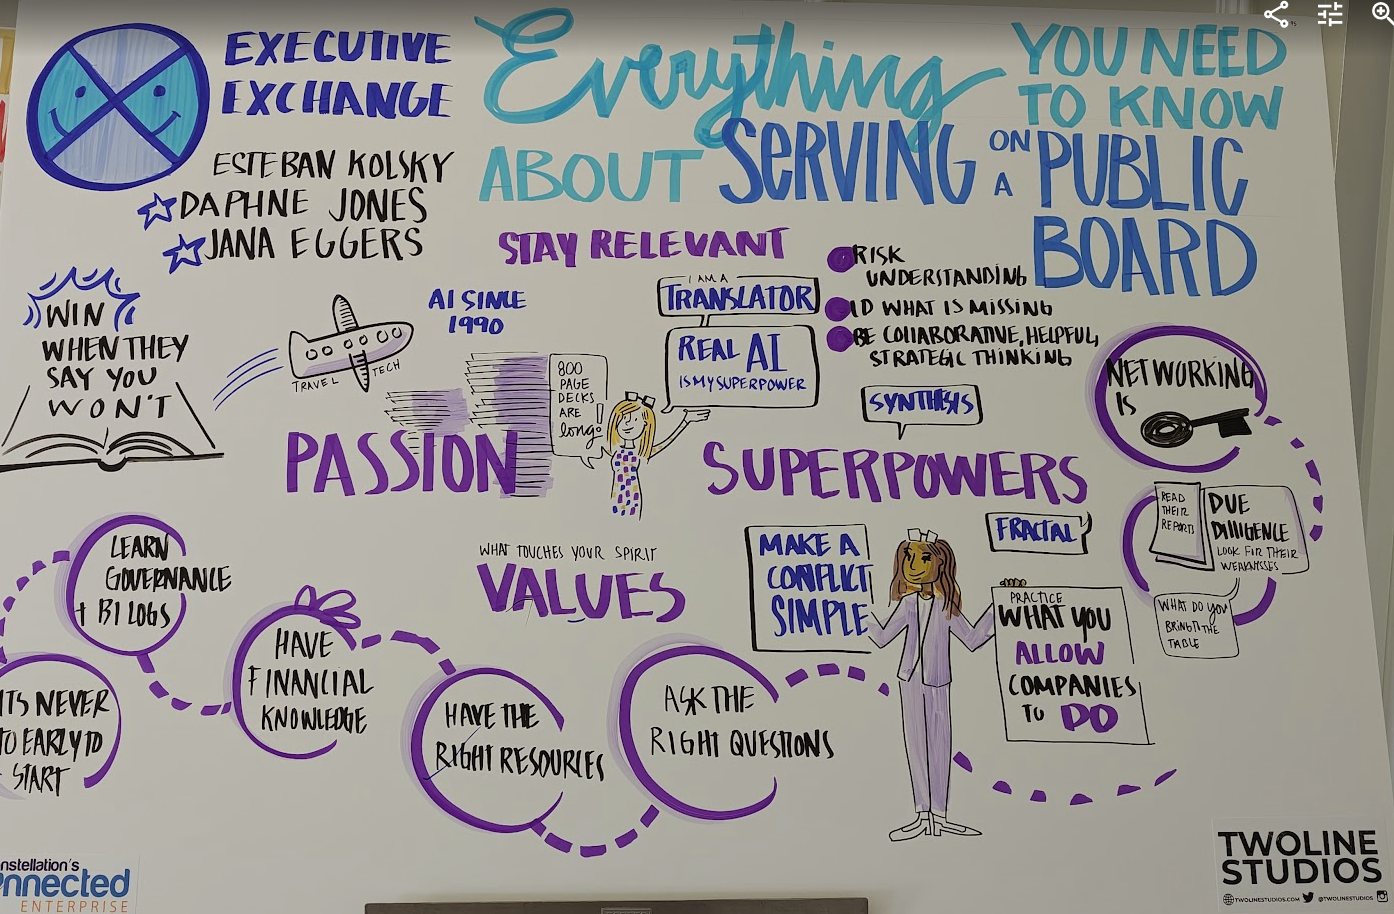 EXECUTIVE
EXCHANGE
ESTEBAN KOLSKY
DAPHNE JONES
JANA EGGERS
Everything YOU NEED
TO KNOW
ABOUT SERVING ON A PUBLIC
BOARD
STAY RELEVANT
RISK
UNDERSTANDING
ID WHAT IS MISSING
BE COLLABORATIVE, HELPFUL,
STRATEGIC THINKING
WIN
WHEN THEY
SAY YOU
WON'T
TRAVEL TECH
AI SINCE
1990
800
PAGE
DECKS
ARE
long!
I AM A
TRANSLATOR
REAL AI
IS MY SUPERPOWER
SYNTHESIS
NETWORKING
IS
PASSION
SUPERPOWERS
READ
THEIR
REPORTS
DUE
DILIGENCE
LOOK FOR THEIR
WEAKNESSES
WHAT DO YOU
BRING TO THE
TABLE
FRACTAL
MAKE A
CONFLICT
SIMPLE
PRACTICE
WHAT YOU
ALLOW
COMPANIES
TO DO
WHAT TOUCHES YOUR SPIRIT
VALUES
LEARN
GOVERNANCE
+ BI LOGS
ITS NEVER
TO EARLY TO
START
HAVE
FINANCIAL
KNOWLEDGE
HAVE THE
RIGHT RESOURCES
ASK THE
RIGHT QUESTIONS
nstellation's
nnected
ENTERPRISE
TWOLINE
STUDIOS
TWOLINESTUDIOS.COM @TWOLINESTUDIOS